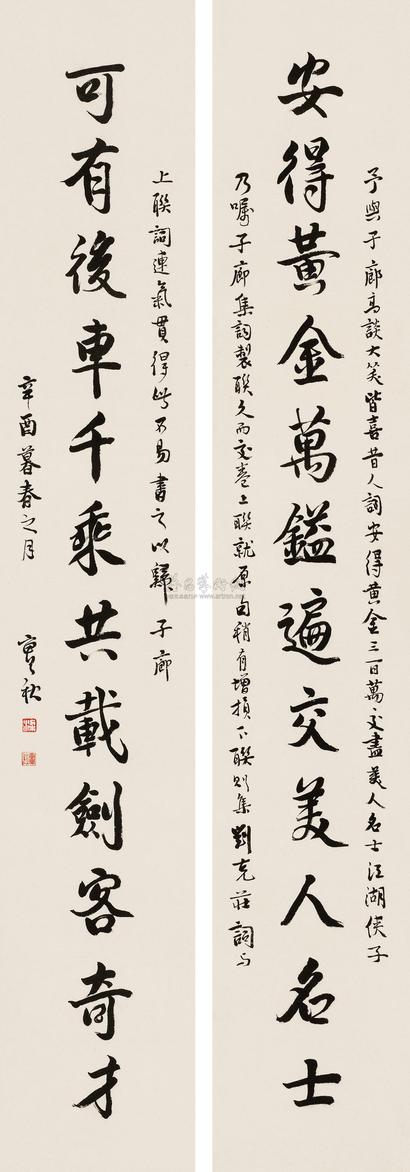 予與子廊高談大笑皆喜昔人詞安得黃金三百萬交盡美人名士江湖俠子
安得黃金萬鎰遍交美人名士
乃囑子廊集詞製聯久而交卷上聯就原句稍有增損下聯則集劉克莊詞與
上聯詞連氣貫得此不易書之以歸子廊
可有後車千乘共載劍客奇才
辛酉暮春之月
實秋